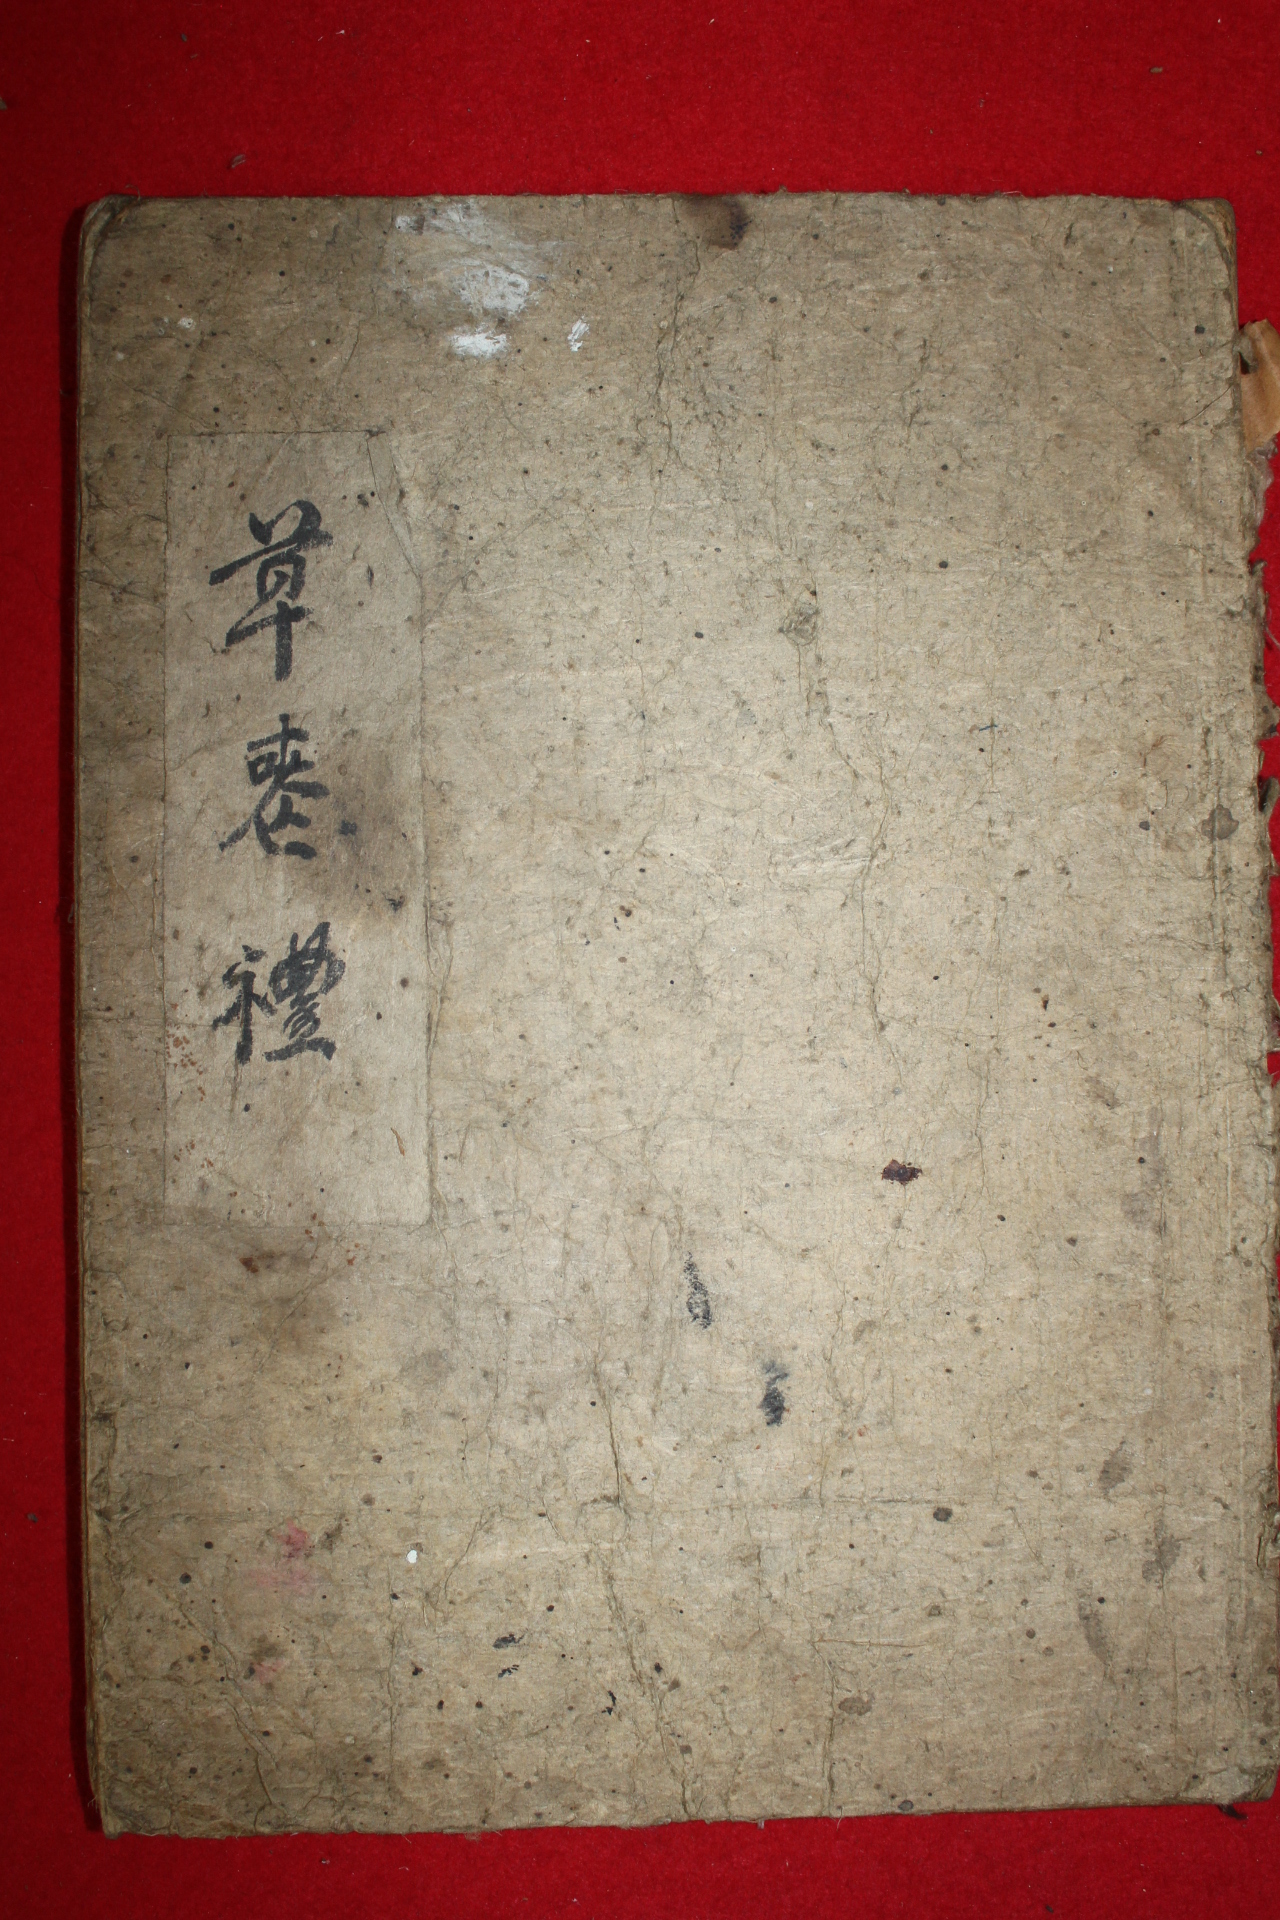 草喪禮